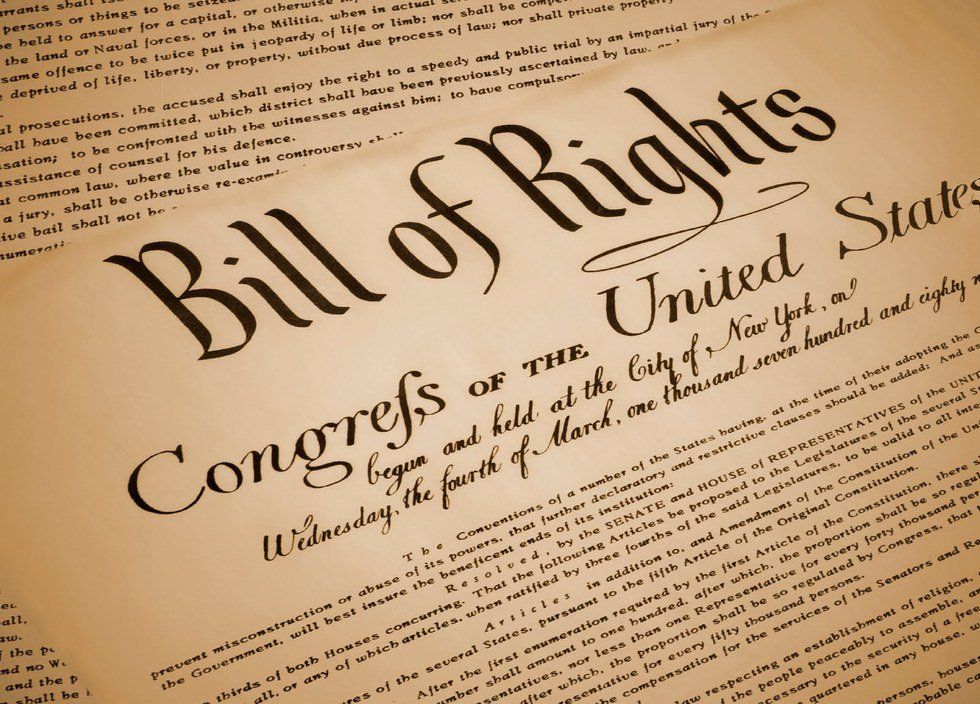 arrants shall iss
persons or things to be seize
be held to answer for a capital, or otherwise
the land or Naval forces, or in the Militia, when in actual ser
same offence to be twice put in jeopardy of life or limb; nor shall be compe
deprived of life, liberty, or property, without due process of law; nor shall private property
al prosecutions, the accused shall enjoy the right to a speedy and public trial by an impartial jury of the
hall have been committed, which district shall have been previously ascertained by law, and
sation; to be confronted with the witnesses against him; to have compulsor
ssistance of counsel for his defence.
t common law, where the value in controversy shall
a jury, shall be otherwise re-exami
ive bail shall not be
numerati
Bill of Rights
Congreſs OF THE United States
begun and held at the City of New York, on
Wednesday, the fourth of March, one thousand seven hundred and eighty n
The Conventions of a number of the States having, at the time of their adopting the C
prevent misconstruction or abuse of its powers, that further declaratory and restrictive clauses should be added: And as
the Government, will best insure the beneficent ends of its institution:
Resolved, by the SENATE and HOUSE of REPRESENTATIVES of the UNIT
thirds of both Houses concurring. That the following Articles be proposed to the Legislatures of the several St
all, or any of which articles, when ratified by three fourths of the said Legislatures, to be valid to all inte
Articles in addition to, and Amendment of the Constitution of the Un
ures of the several States, pursuant to the fifth Article of the Original Constitution.
After the first enumeration required by the first Article of the Constitution, there s
mber shall amount to one hundred, after which, the proportion shall be so regul
sentatives, nor less than one Representative for every forty thousand pe
after which, the proportion shall be so regulated by Congress, that
resentative for every fifty thousand persons.
the compensation for the services of the Senators and Re
law respecting an establishment of religion,
of the people peaceably to assemble, an
necessary to the security of a fre
quartered in any house,
persons, hous
probable ca
all,
law.
of the pe
and no W
and the p
shall be